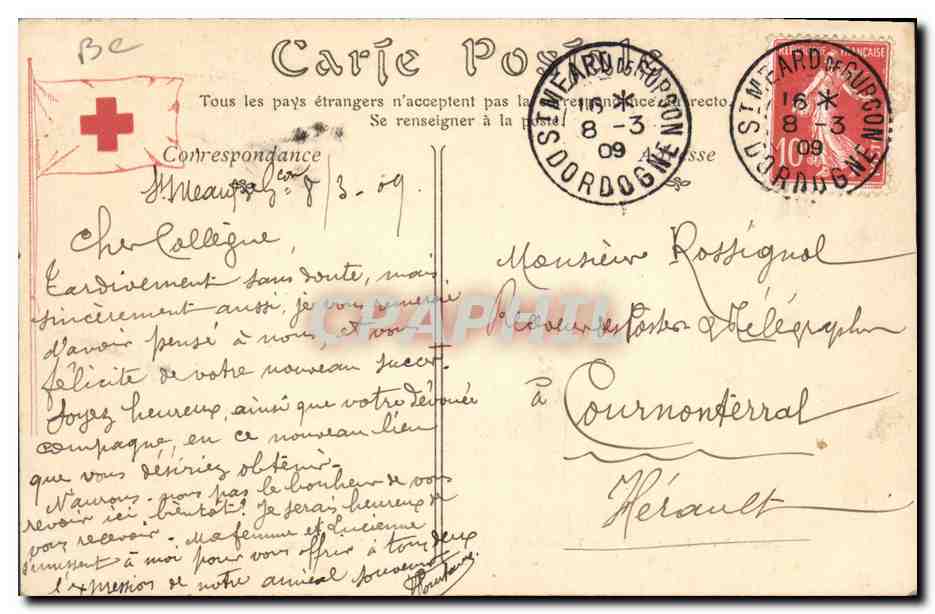 BC
Carte Postale
Tous les pays étrangers n'acceptent pas la correspondance au recto.
Se renseigner à la poste.
Correspondance
Adresse
St Méard de Gçon 8/3-09
Cher Collègue,
Tardivement sans doute, mais
sincèrement aussi, je vous remercie
d'avoir pensé à nous et vous
félicite de votre nouveau succès.
Soyez heureux, ainsi que votre dévouée
compagne, en ce nouveau lieu
que vous désiriez obtenir.
N'aurons-nous pas le bonheur de vous
revoir ici bientôt? Je serais heureux de
vous recevoir. Ma femme et Lucienne
s'unissent à moi pour vous offrir à tous deux
l'expression de notre amical souvenir
ST MEARD DE GURÇON
16 *
8 -3
09
DORDOGNE
REPUBLIQUE FRANÇAISE
10
ST MEARD DE GURÇON
16 *
8 -3
09
DORDOGNE
Monsieur Rossignol
Receveur des Postes & Télégraphes
à Cournonterral
Hérault
CPAPHIL